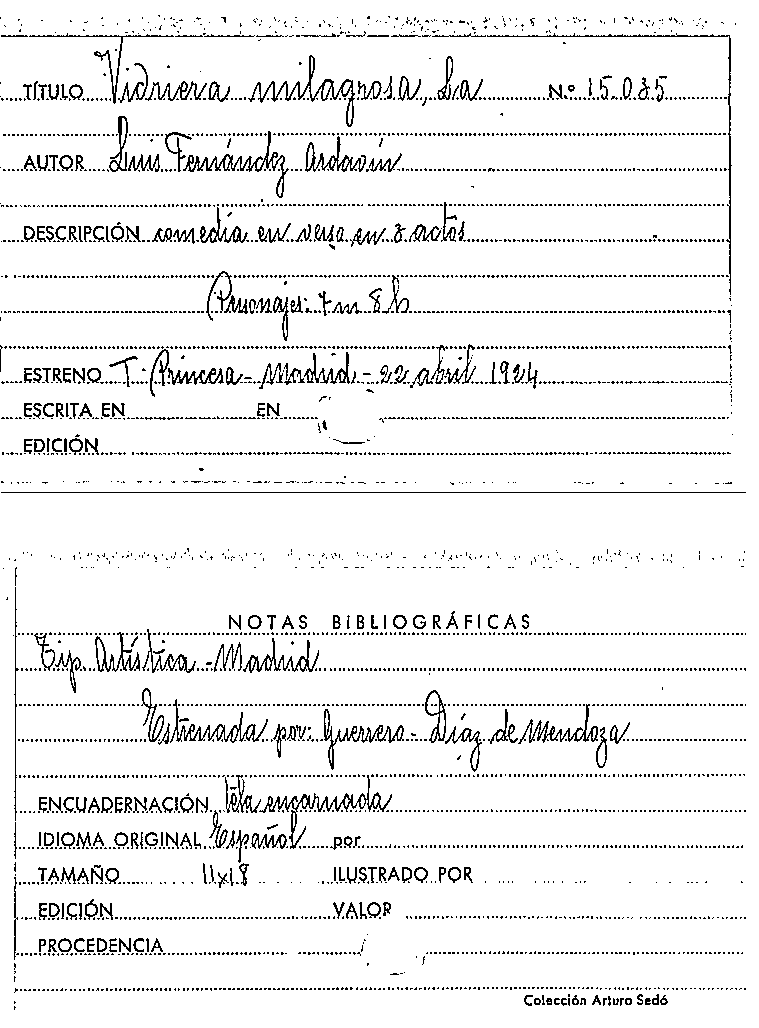 TÍTULO Vidriera milagrosa, La Nº 15.035
AUTOR Luis Fernández Ardavín
DESCRIPCIÓN comedia en verso en 3 actos
Personajes: 7 m 8 h
ESTRENO T. Princesa - Madrid - 22 abril 1924
ESCRITA EN EN
EDICIÓN
NOTAS BIBLIOGRÁFICAS
Tip. Artística - Madrid
Estrenada por: Guerrero - Díaz de Mendoza
ENCUADERNACIÓN tela encarnada
IDIOMA ORIGINAL Español por
TAMAÑO 11x18 ILUSTRADO POR
EDICIÓN VALOR
PROCEDENCIA
Colección Arturo Sedó